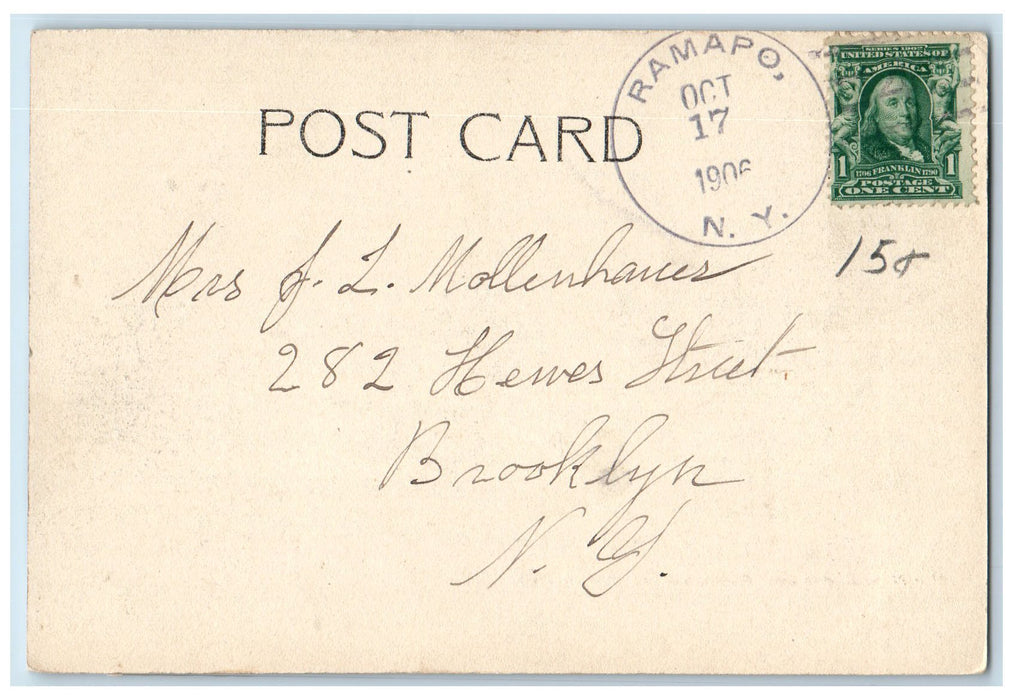 POST CARD
RAMAPO,
OCT
17
1906
N. Y.
SERIES 1902
UNITED STATES OF
AMERICA
1 1706 FRANKLIN 1790 1
POSTAGE
ONE CENT
Mrs J. L. Mollenhauer
282 Hewes Street
Brooklyn
N. Y.